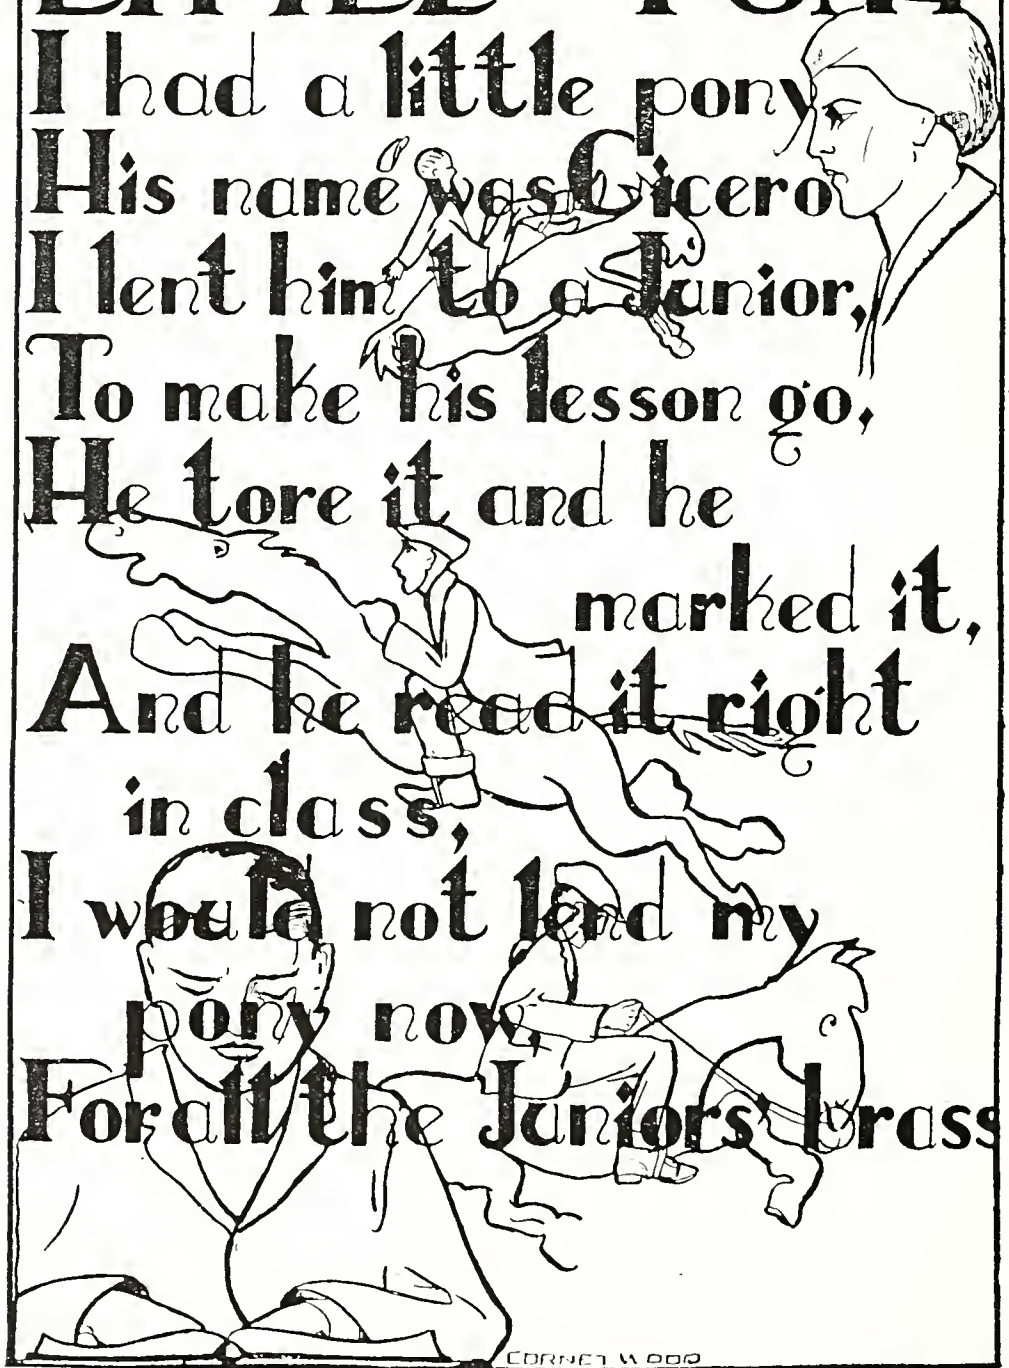 LITTLE PONY
I had a little pony
His name was Cicero
I lent him to a Junior,
To make his lesson go,
He tore it and he
marked it,
And he read it right
in class,
I would not lend my
pony now,
For all the Juniors' brass
CORNET WOOD